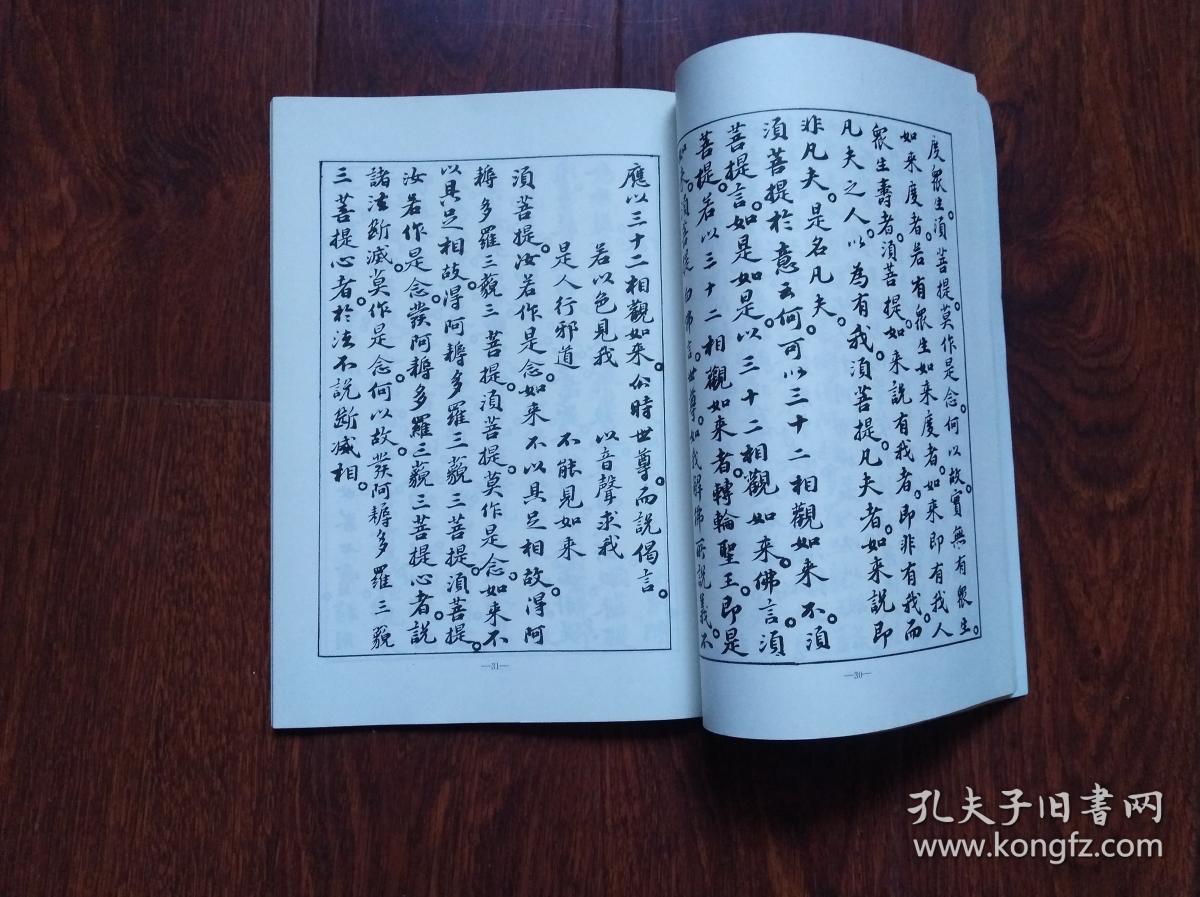 度眾生。須菩提。莫作是念。何以故。實無有眾生。
如來度者。若有眾生如來度者。如來即有我人
眾生壽者。須菩提。如來說有我者。即非有我。而
凡夫之人。以為有我。須菩提。凡夫者。如來說即
非凡夫。是名凡夫。
須菩提於意云何。可以三十二相觀如來不。須
菩提言。如是如是。以三十二相觀如來。佛言。須
菩提。若以三十二相觀如來者。轉輪聖王。即是
如來。須菩提白佛言。世尊。如我解佛所說義。不
—30—
應以三十二相觀如來。尒時世尊。而說偈言。
若以色見我 以音聲求我
是人行邪道 不能見如來
須菩提。汝若作是念。如來不以具足相故。得阿
耨多羅三藐三菩提。須菩提。莫作是念。如來不
以具足相故。得阿耨多羅三藐三菩提。須菩提。
汝若作是念。發阿耨多羅三藐三菩提心者。說
諸法斷滅。莫作是念。何以故。發阿耨多羅三藐
三菩提心者。於法不說斷滅相。
—31—
孔夫子旧书网
www.kongfz.com